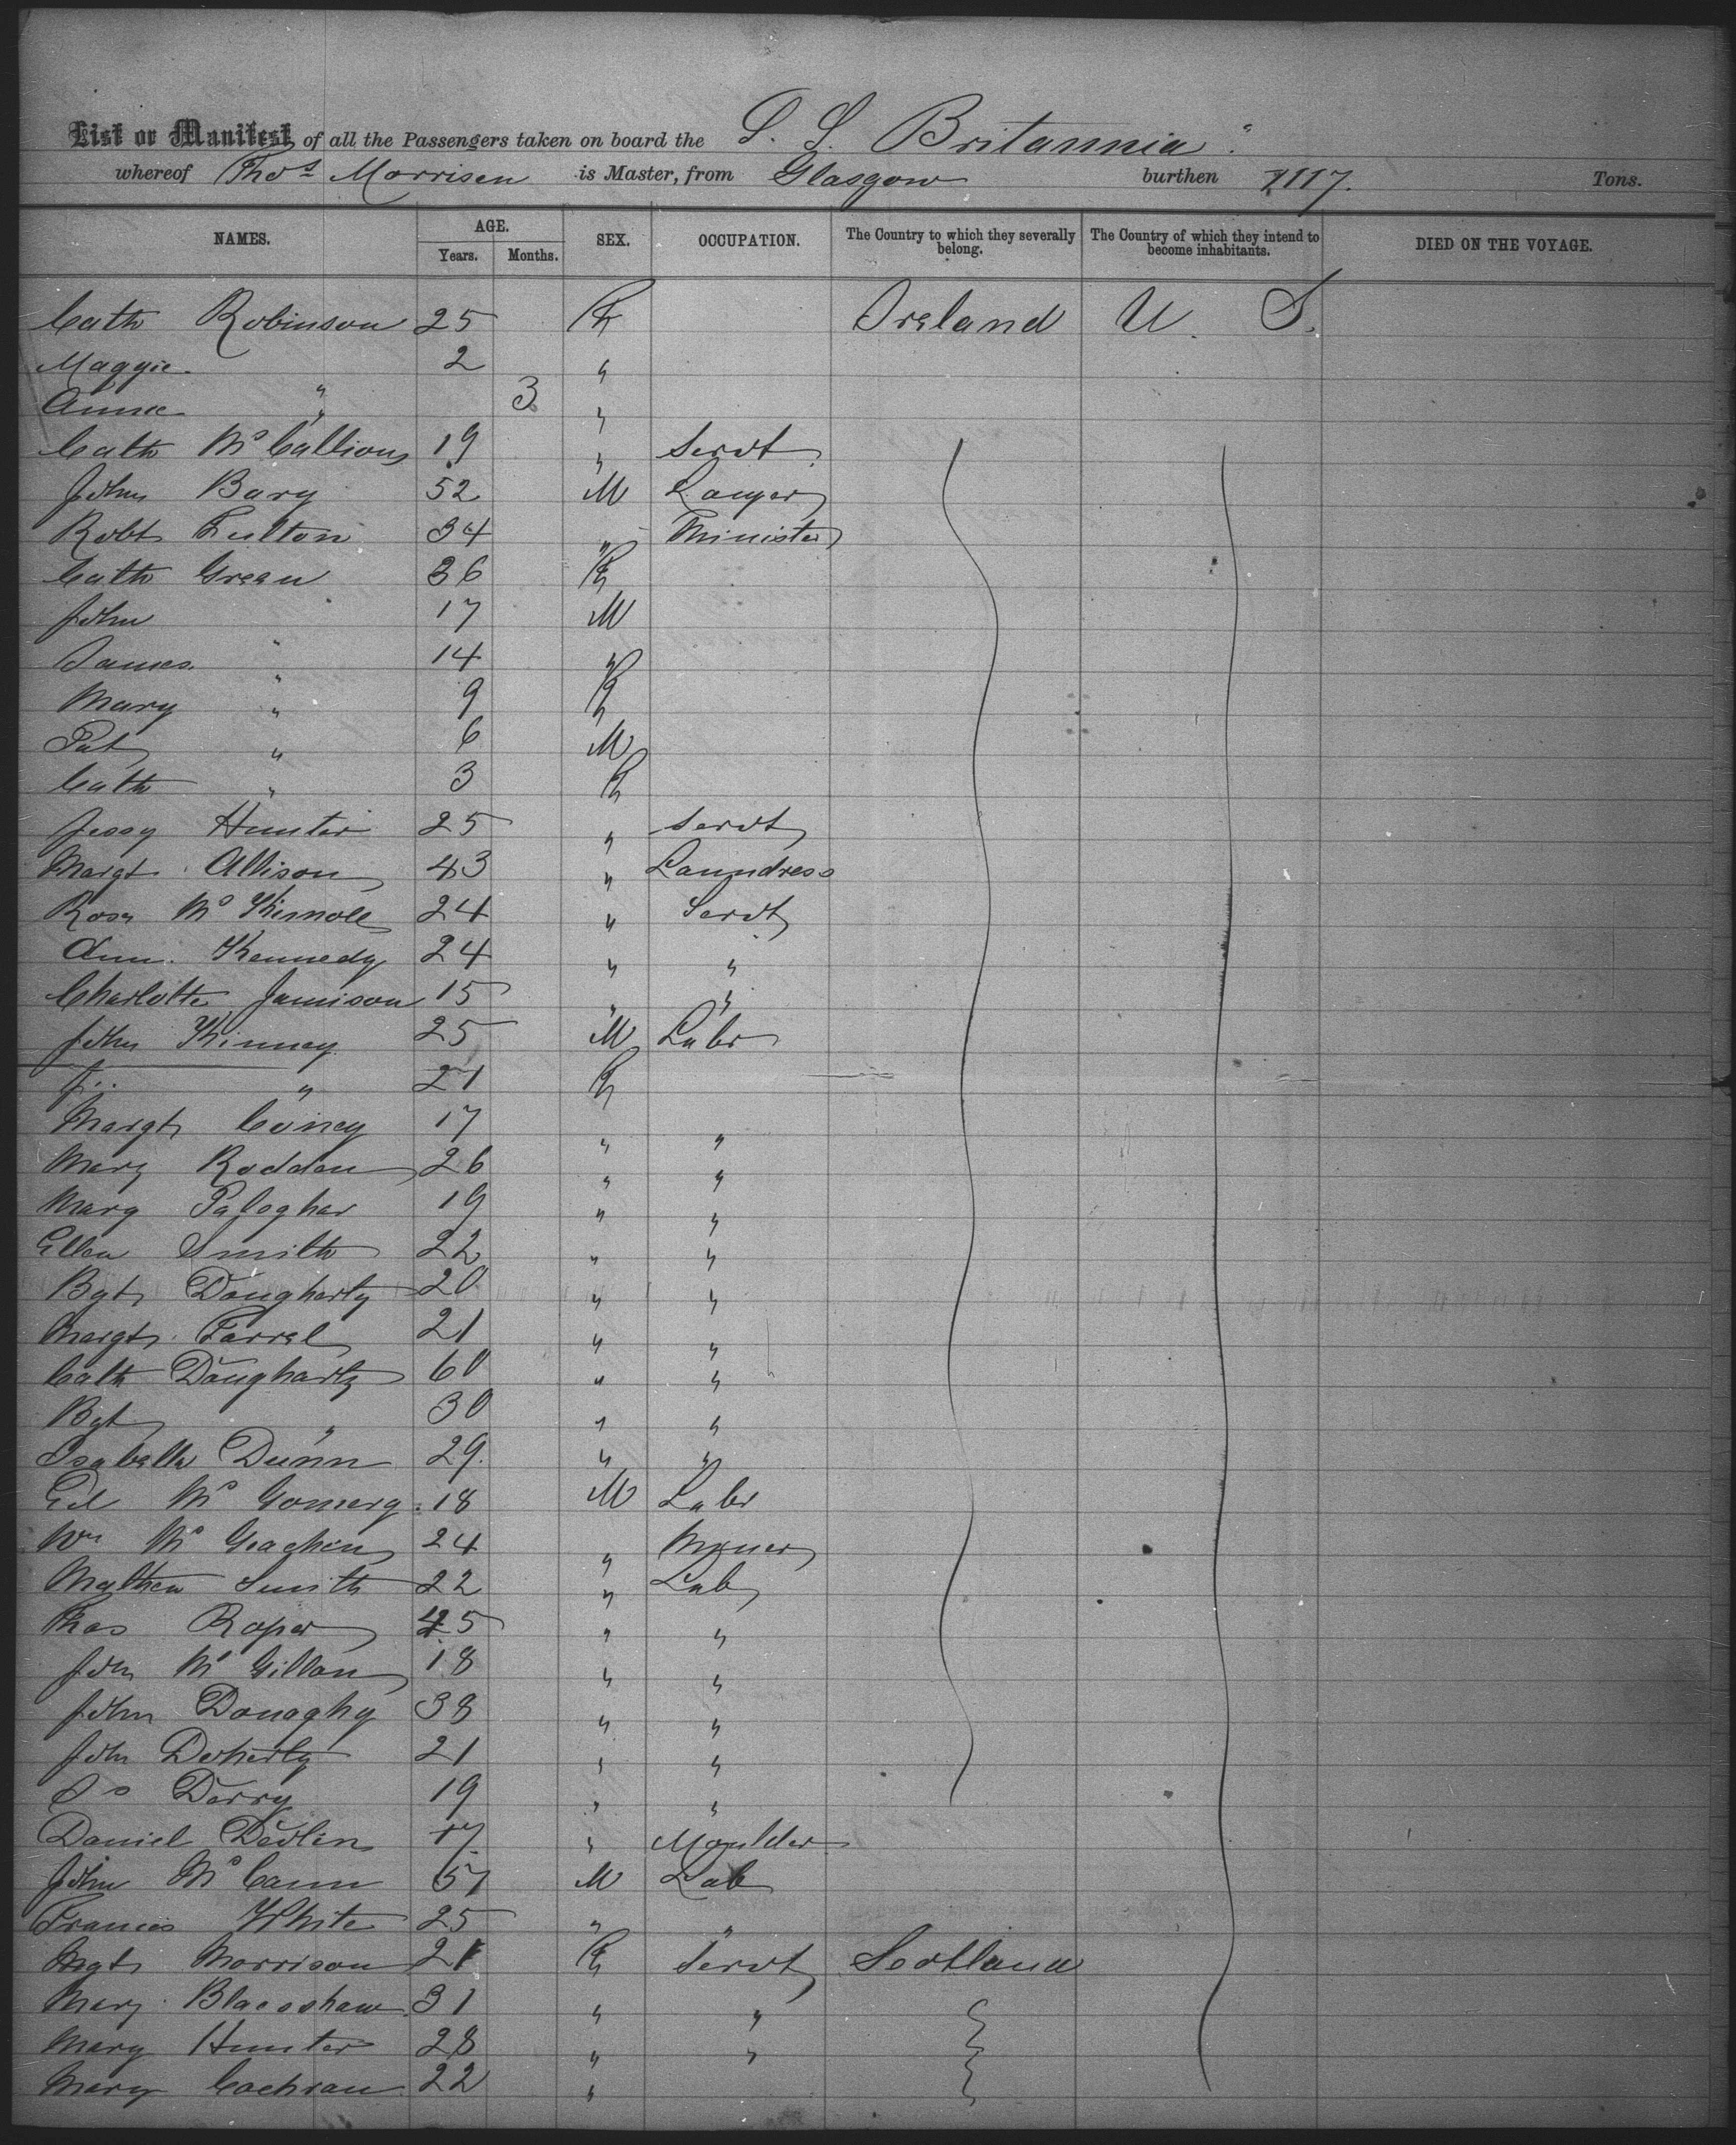 List or Manifest of all the Passengers taken on board the S. S. Britannia"
whereof Thos Morrison is Master, from Glasgow burthen 2117. Tons.
NAMES. AGE. Years. Months. SEX. OCCUPATION. The Country to which they severally belong. The Country of which they intend to become inhabitants. DIED ON THE VOYAGE.
Cath Robinson 25 F Ireland U. S.
Maggie " 2 "
Annie " 3 "
Cath Mc Callion 19 " Servt
John Bary 52 M
Robt Fulton 34 " Minister
Cath Green 36 F
John " 17 M
James " 14 "
Mary " 9 F
Pat " 6 M
Cath " 3 F
Jessy Hunter 25 " Servt
Margt Allison 43 " Laundress
Rose Mc 24 " Servt
Ann Kennedy 24 " "
Charlotte Jamison 15 " "
John Kinney 25 M Labr
" 21 F
Margt Coney 17 " "
Mary Rodden 26 " "
Mary 19 " "
Ellen Smith 22 " "
Bgt Dougherty 20 " "
Margt Farrel 21 " "
Cath Dougharty 60 " "
Bgt " 30 " "
Isabella Dunn 29 " "
Ed Mc Gomery 18 M Labr
Wm Mc Geachin 24 " Miner
Mathew Smith 22 " Lab
Thos Roper 45 " "
John Mc Gillan 18 " "
John Donaghy 38 " "
John Doherty 21 " "
Js Derry 19 " "
Daniel Devlin 17 " Moulder
John Mc Cann 57 M Lab
Francis White 25 " "
Mgt Morrison 21 F Servt Scotland
Mary 31 " "
Mary Hunter 28 " "
Mary Cochran 22 "